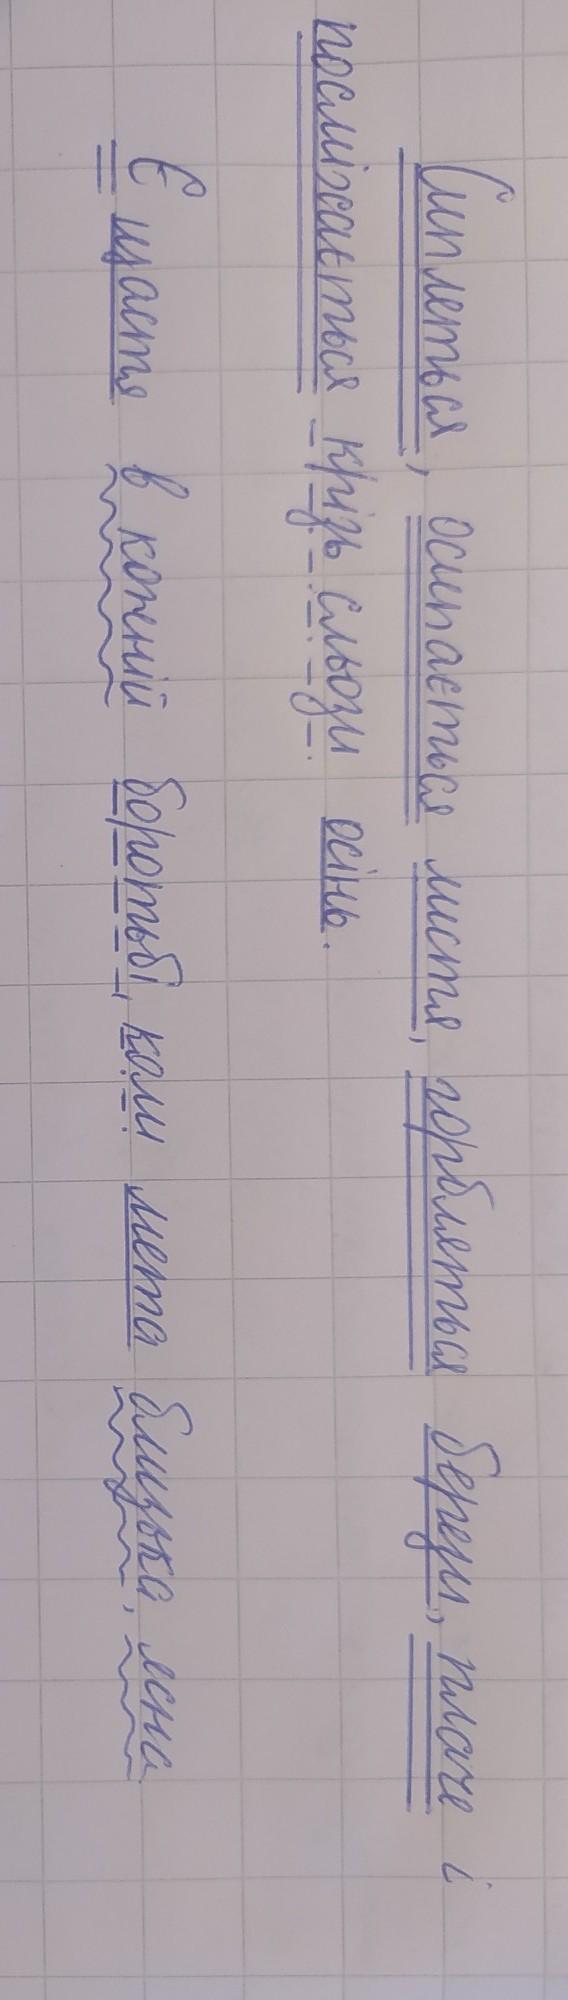 Сиплеться, осипається листя, горбляться берези, плаче і
посміхається крізь сльози осінь.
Є щастя в кожній боротьбі, коли мета близька, ясна.